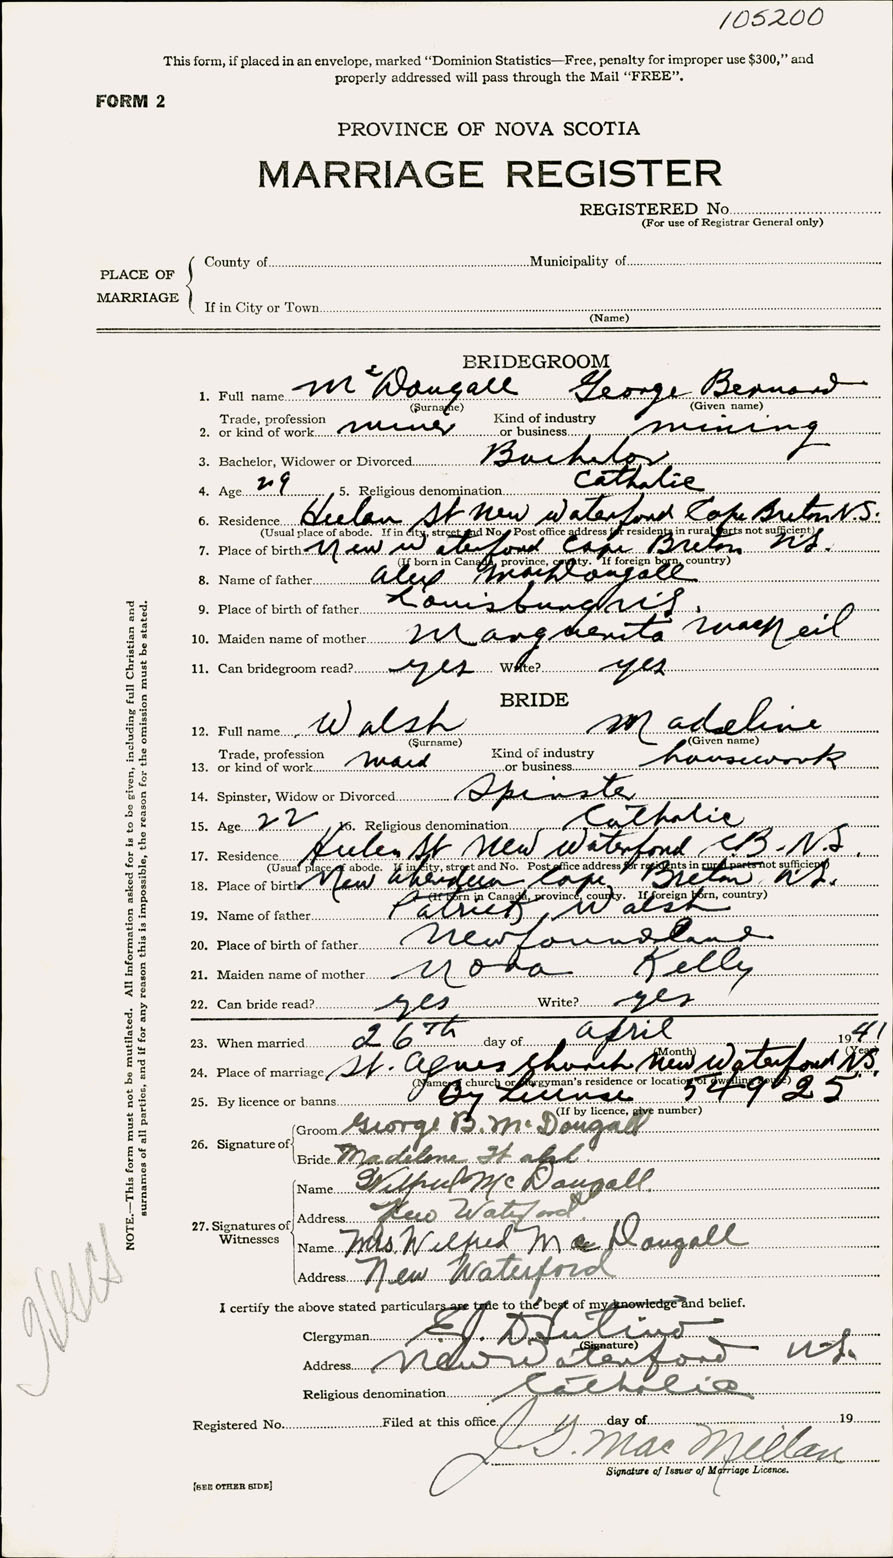 105200
This form, if placed in an envelope, marked "Dominion Statistics—Free, penalty for improper use $300," and
properly addressed will pass through the Mail "FREE".
FORM 2
PROVINCE OF NOVA SCOTIA
MARRIAGE REGISTER
REGISTERED No.
(For use of Registrar General only)
PLACE OF MARRIAGE
County of Municipality of
If in City or Town
(Name)
BRIDEGROOM
1. Full name McDougall George Bernard
(Surname) (Given name)
2. Trade, profession or kind of work miner Kind of industry or business mining
3. Bachelor, Widower or Divorced Bachelor
4. Age 29 5. Religious denomination Catholic
6. Residence Helen St New Waterford Cape Breton N.S.
(Usual place of abode. If in city, street and No. Post office address for residents in rural parts not sufficient)
7. Place of birth New Waterford Cape Breton N.S.
(If born in Canada, province, county. If foreign born, country)
8. Name of father Alex MacDougall
9. Place of birth of father Louisburg N.S.
10. Maiden name of mother Marguerita MacNeil
11. Can bridegroom read? yes Write? yes
BRIDE
12. Full name Walsh Madeline
(Surname) (Given name)
13. Trade, profession or kind of work maid Kind of industry or business housework
14. Spinster, Widow or Divorced Spinster
15. Age 22 16. Religious denomination Catholic
17. Residence Helen St New Waterford C.B. N.S.
(Usual place of abode. If in city, street and No. Post office address for residents in rural parts not sufficient)
18. Place of birth New Aberdeen Cape Breton N.S.
(If born in Canada, province, county. If foreign born, country)
19. Name of father Patrick Walsh
20. Place of birth of father Newfoundland
21. Maiden name of mother Nora Kelly
22. Can bride read? yes Write? yes
23. When married 26th day of April 1941
(Month) (Year)
24. Place of marriage St. Agnes Church New Waterford N.S.
(Name of church or clergyman's residence or location of dwelling house)
25. By licence or banns By License 54925
(If by licence, give number)
26. Signature of
Groom George B. McDougall
Bride Madeline Walsh
27. Signatures of Witnesses
Name Wilfred McDougall
Address New Waterford
Name Mrs Wilfred MacDougall
Address New Waterford
I certify the above stated particulars are true to the best of my knowledge and belief.
Clergyman E.J.
(Signature)
Address New Waterford N.S.
Religious denomination Catholic
Registered No. Filed at this office day of 19
J G. MacMillan
Signature of Issuer of Marriage Licence.
[SEE OTHER SIDE]
NOTE.—This form must not be mutilated. All information asked for is to be given, including full Christian and
surnames of all parties, and if for any reason this is impossible, the reason for the omission must be stated.